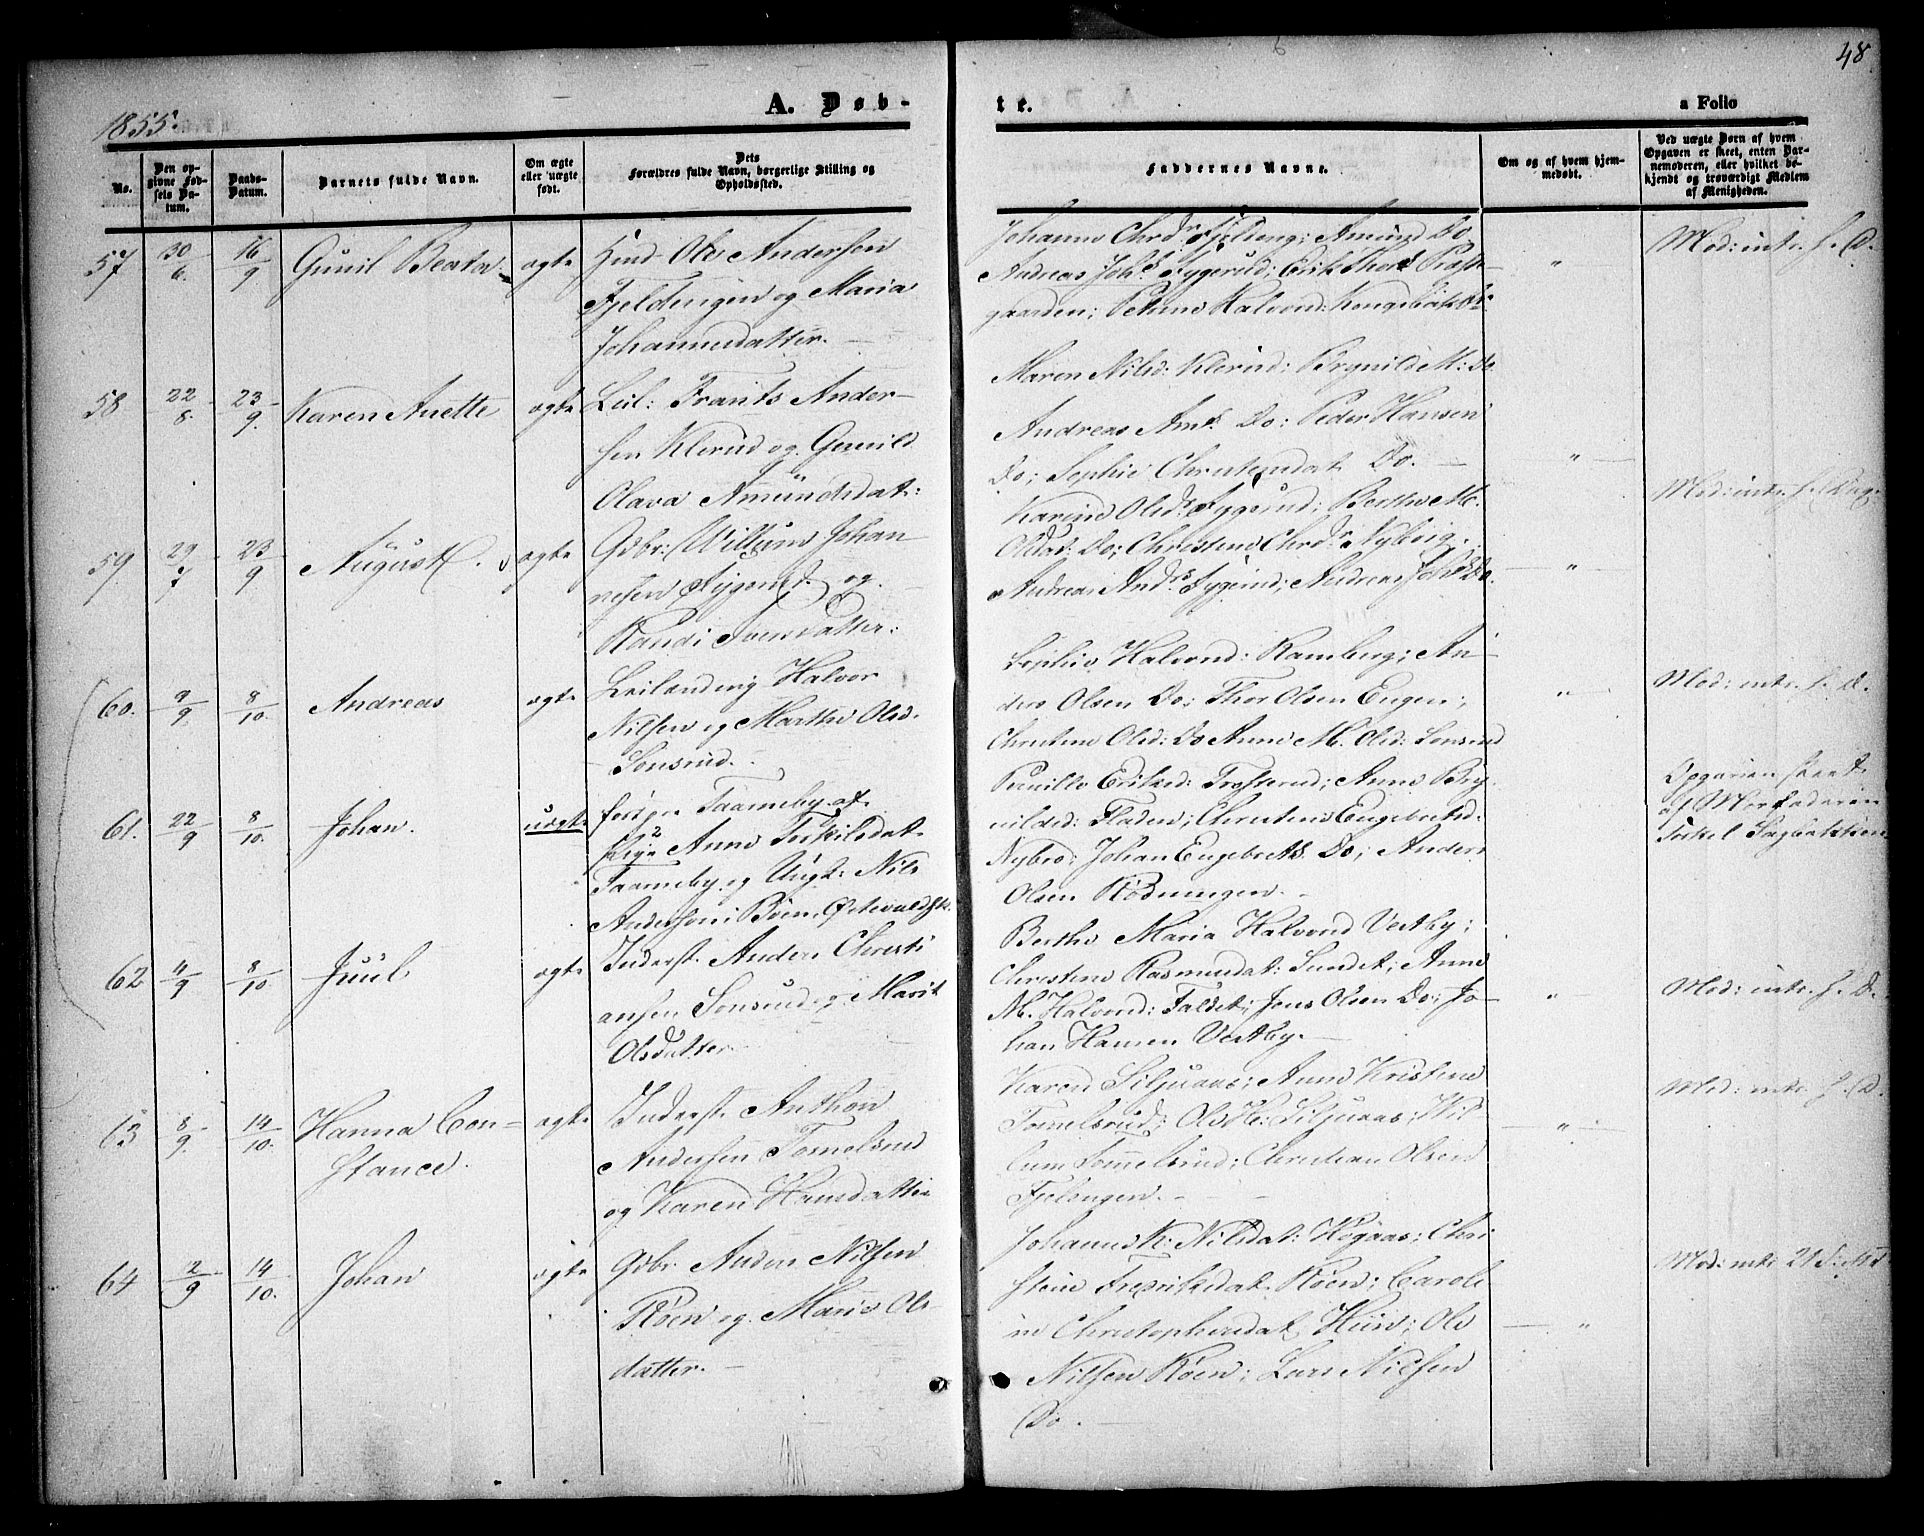 48
1855.
A. Døb-
te.
a Folio
No.
Den opgivne Fødsels Datum.
Daabs-Datum.
Barnets fulde Navn.
Om ægte eller uægte født.
Dets Forældres fulde Navn, borgerlige Stilling og Opholdssted.
Faddernes Navne.
Om og af hvem hjemmedøbt.
Ved uægte Børn af hvem Opgaven er skeet, enten Barnemoderen, eller hvilket bekjendt og troværdigt Medlem af Menigheden.
57 30/6 16/9 Gunil Beata. ægte
Huusd Ole Andersen
Fjeldengen og Maria
Johannesdatter. —
Andreas Joh.s Sygerud; Erik Præste-
gaarden; Petrine Halvorsd:
" Mod: intr. f. D.
58 22/8 23/9. Karen Anette ægte
Lul: Frants Ander-
sen Klerud og Gunild
Olava Amundsdat:
Maren Nilsd: Klerud: Brynild M: Do
Andreas Am.s Do: Peder Hansen
Do; Sophie Christensdat. Do. —
" Mod: intr. f.
59 29/7 23/9 August. ægte
Gdbr: Willum Johan-
nesen Sygerud og
Randi Svensdatter:
Karine Olsd. Sygerud; Berthe M.
Olsdat: Do; Christine Chrd. Nybvig.
Andreas And.s Sygerud; Andreas Joh.s Do.
"
60. 9/9 8/10. Andreas ægte
Leilænding Halvor
Nilsen og Marthe Olsd.
Sonsrud.
Sophie Halvorsd: Ramberg; An-
ders Olsen Do; Thor Olsen Engen;
Christine Olsd: Do Anne M. Olsd: Sonsrud
" Mod: intr. f. D.
61. 22/9 8/10. Johan. uægte
Taarneby af
Pige Anne Torkilsdat.
Taarneby og Ungk: Nils
Andersen Bøen, Østvoldsk.
Pernille Eriksd: Trosterud; Anne Bry-
nildsd: Fladen; Christine Engebretsd.
Nybro; Johan Engebrets. Do; Anders
Olsen Rødningen.
Opgaven skeet
af Morfaderen
Torkel
62 4/9 8/10 Juul ægte
Inderst. Anders Christi
ansen Sonsrud og Marit
Olsdatter
Berthe Maria Halvorsd Vestby;
Christine Rasmusdat: Sundet; Anne
M. Halvorsd: Faldet; Jens Olsen Do; Jo-
han Hansen Vestby. —
" Mod: intr. f. D.
63 8/9. 14/10. Hanna Con-
stance.
ægte
Inderst. Anthon
Andersen Tomelsrud
og Karen Hansdatter
Karen Siljuaas; Anne Kristine
Tomelsrud; Ole He: Siljuaas; Wil
lum Tomelsrud; Christian Olsen
Fjelengen. —
" Mod: intr. f. D.
64 2/9 14/10. Johan ægte
Gdbr. Anders Nilsen
Røen og Marie Ols-
datter. —
Johanne K: Nilsdat: Høgaas; Chri
stine Fredriksdat. Røen; Caroli
ne Christophersdat. Huin; Ole
Nilsen Røen; Lars Nilsen
Do. —
" Mod: intr.